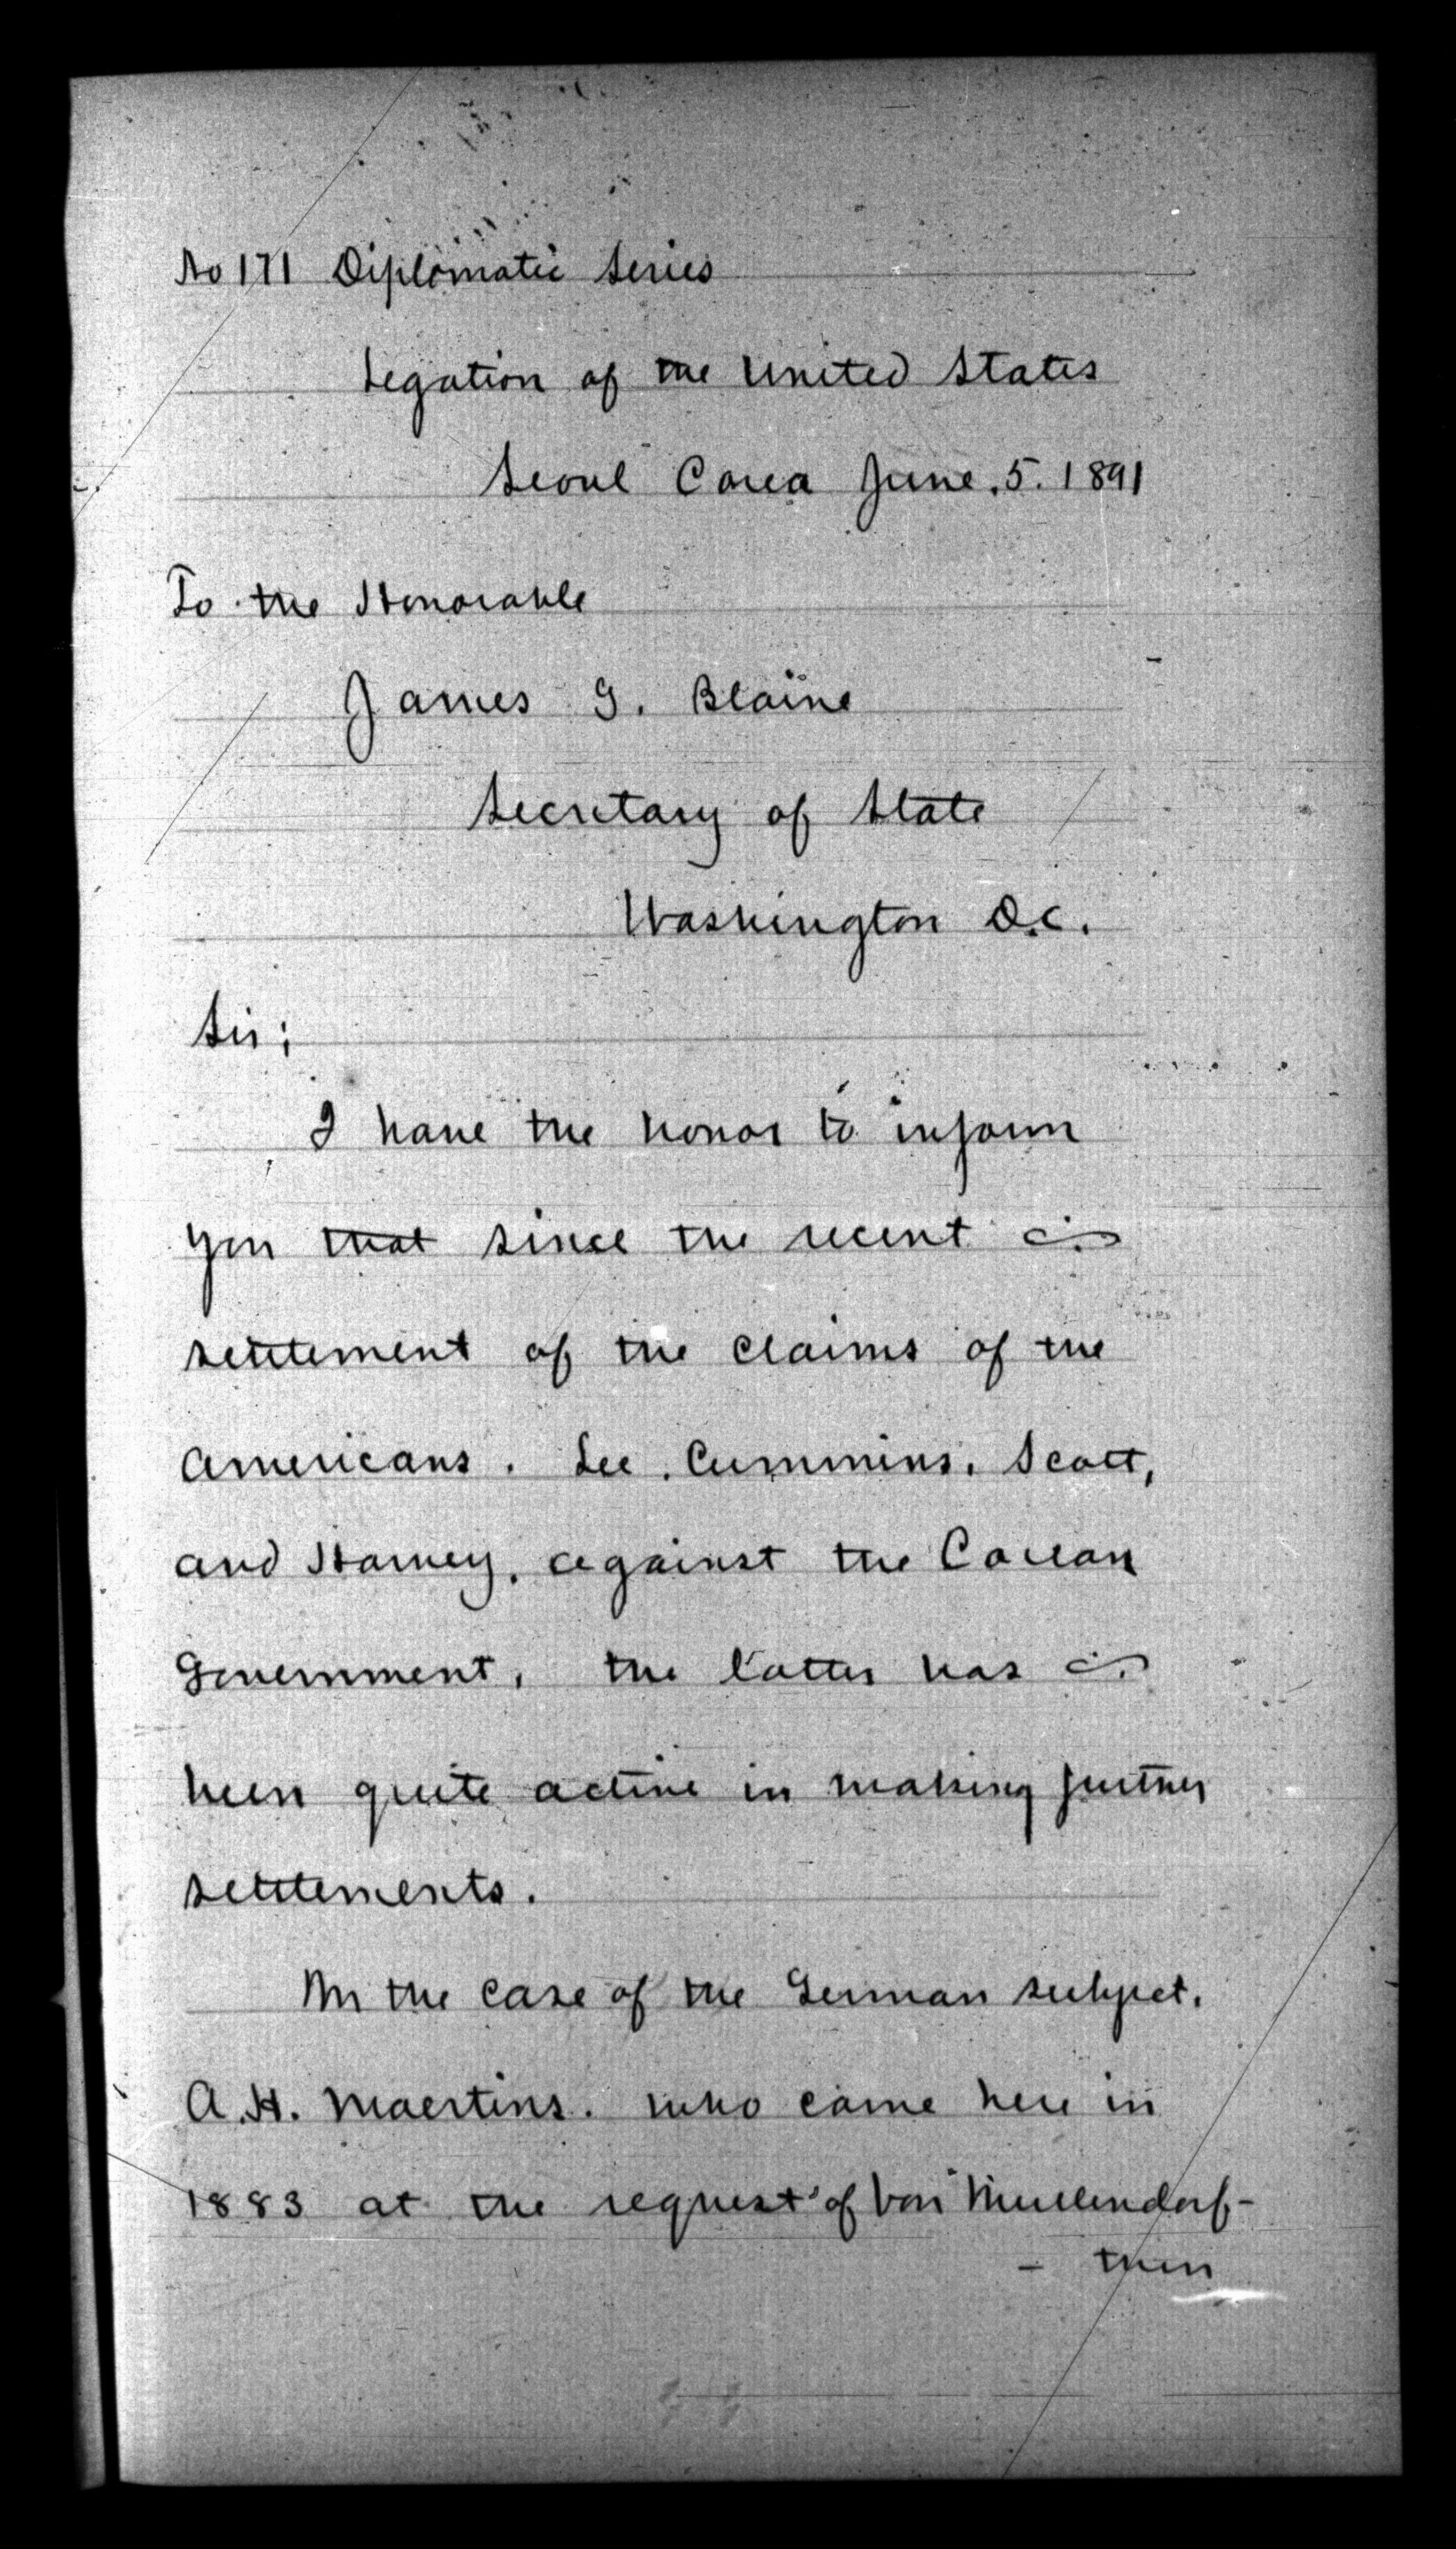 No 171 Diplomatic Series
Legation of the United States
Seoul Corea June. 5. 1891
To the Honorable
James G. Blaine
Secretary of State
Washington D.C.
Sir;
I have the honor to inform
you that since the recent
settlement of the claims of the
Americans. Lee. Cummins. Scott,
and Harney. against the Corean
Government, the latter has
been quite active in making further
settlements.
In the case of the German subject.
A.H. Maertens. who came here in
1883 at the request of Von Muellendorf-
- then